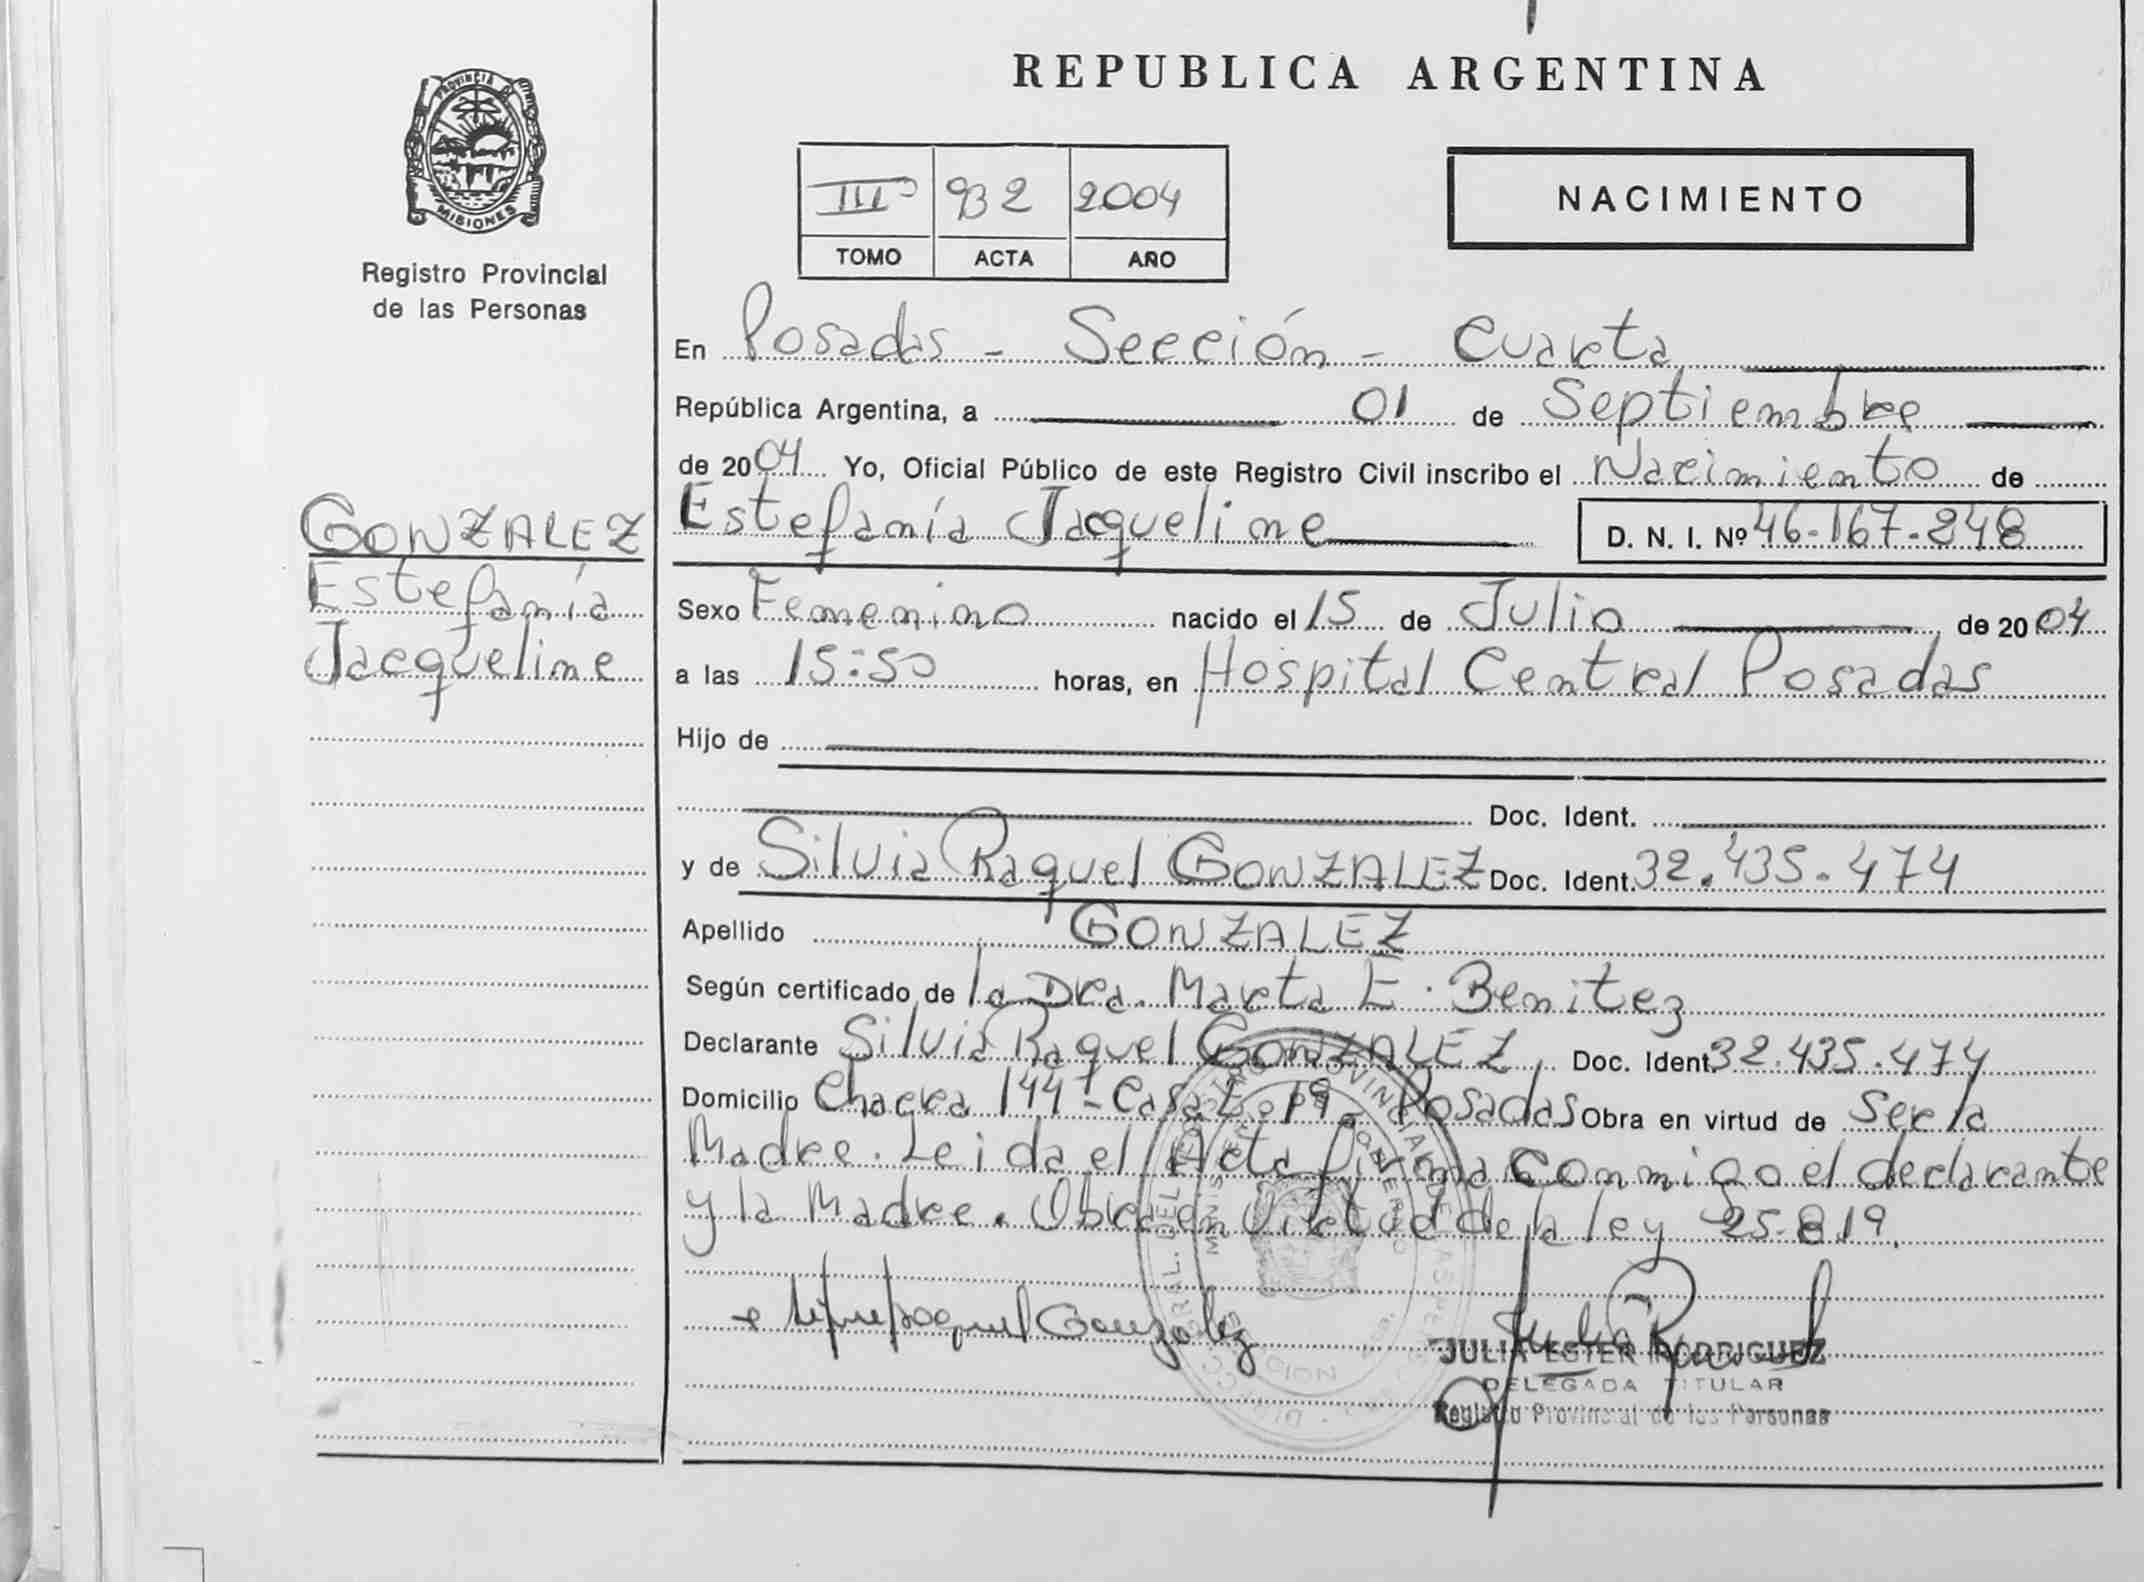 REPUBLICA ARGENTINA
PROVINCIA DE
MISIONES
Registro Provincial
de las Personas
III 932 2004
TOMO ACTA AÑO
NACIMIENTO
En Posadas - Sección - Cuarta
República Argentina, a 01 de Septiembre
de 2004 Yo, Oficial Público de este Registro Civil inscribo el Nacimiento de
Estefanía Jacqueline D. N. I. Nº 46-167-248
GONZALEZ
Estefanía
Jacqueline
Sexo Femenino nacido el 15 de Julio de 2004
a las 15:50 horas, en Hospital Central Posadas
Hijo de
Doc. Ident.
y de Silvia Raquel GONZALEZ Doc. Ident. 32.435.474
Apellido GONZALEZ
Según certificado de la Dra. Marta E. Benitez
Declarante Silvia Raquel GONZALEZ Doc. Ident. 32.435.474
Domicilio Chacra 144 - Casa 19 - Posadas Obra en virtud de Ser la
Madre. Leida el Acta firma conmigo el declarante
y la Madre. Obra en virtud de la ley 25.819.
Raquel Gonzalez
JULIA ESTER RODRIGUEZ
DELEGADA TITULAR
Registro Provincial de las Personas